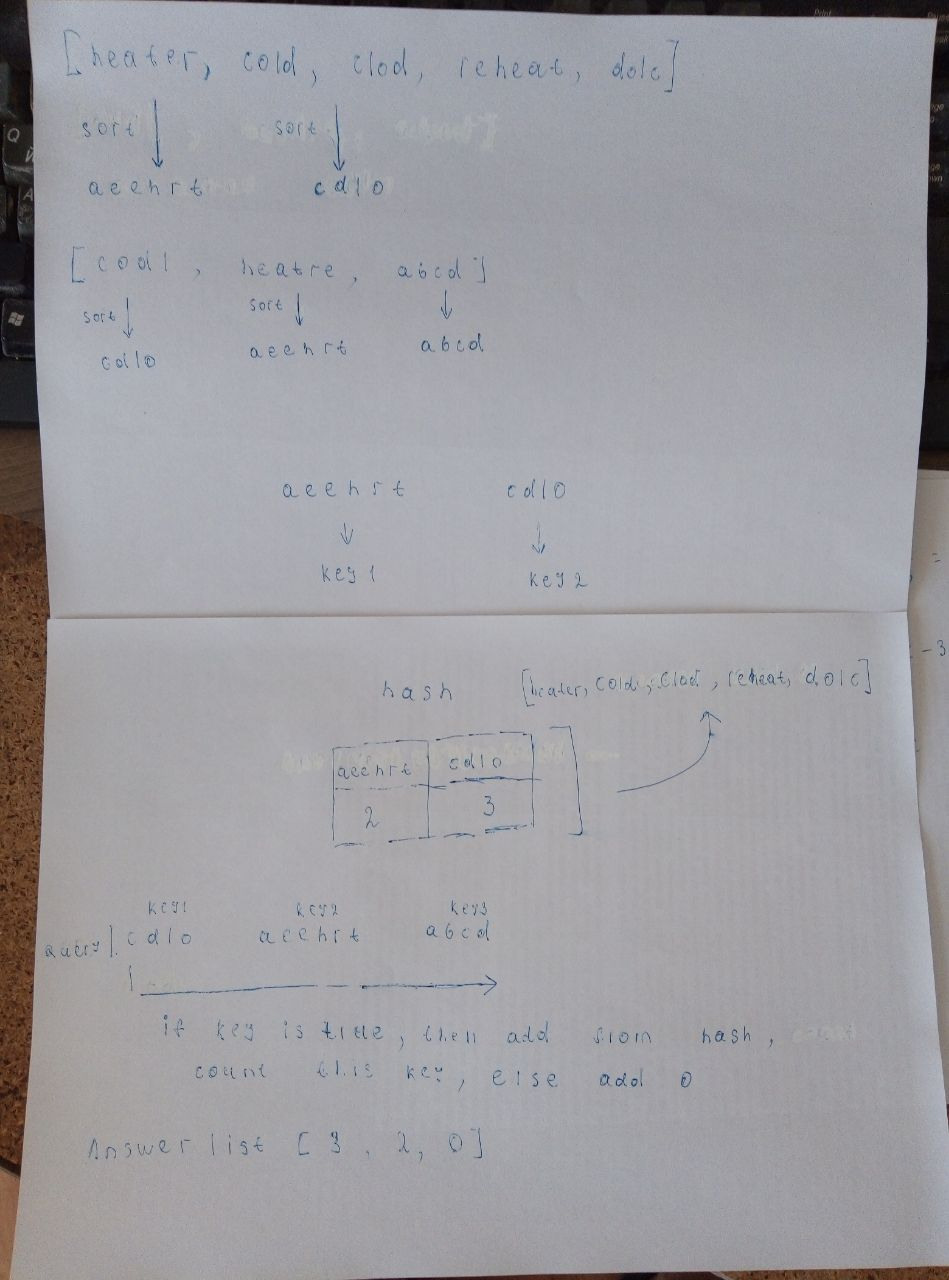 [heater, cold, clod, reheat, dolc]
sort sort
aeehrt cdlo
[codl, heatre, abcd]
sort sort
cdlo aeehrt abcd
aeehrt cdlo
key 1 key 2
hash [heater, cold, clod, reheat, dolc]
aeehrt cdlo
2 3
key1 key2 key3
query cdlo aeehrt abcd
if key is true, then add from hash,
count this key, else add 0
Answer list [3, 2, 0]